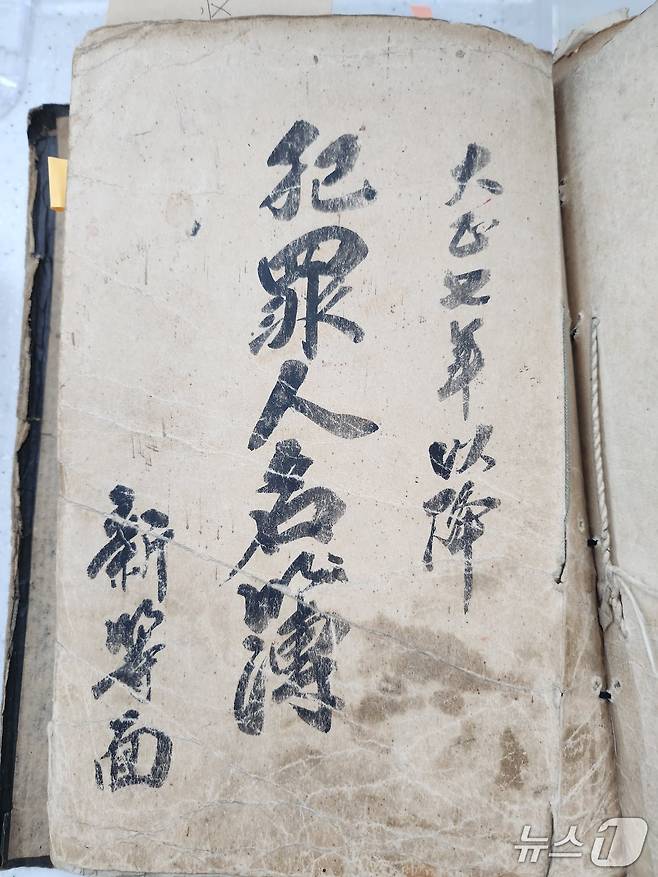 大正四年以降
犯罪人名簿
新等面
뉴스1